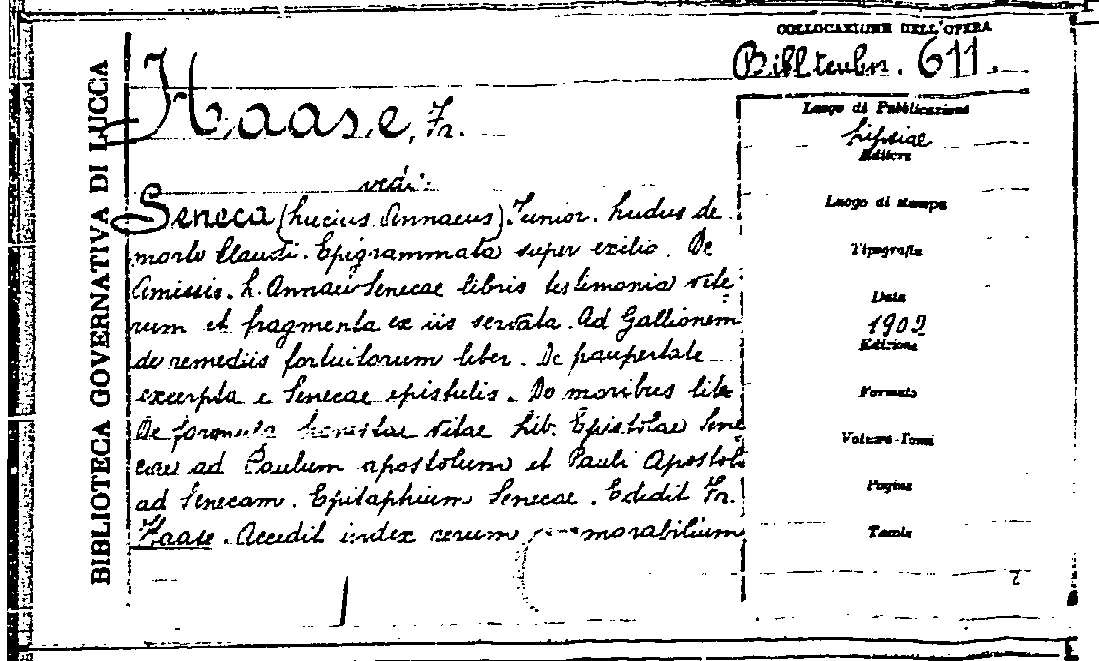 BIBLIOTECA GOVERNATIVA DI LUCCA
COLLOCAZIONE DELL'OPERA
Bibl. teubn. 611.
Haase, Fr.
vedi:
Seneca (Lucius Annaeus) Junior. Ludus de
morte Claudi. Epigrammata super exilio. De
Amissis. L. Annaei Senecae libris testimonia vete
rum et fragmenta ex iis servata. Ad Gallionem
de remediis fortuitorum liber. De paupertate
excerpta e Senecae epistulis. De moribus libe
De formula honestae vitae lib. Epistolae Sene
cae ad Paulum apostolum et Pauli Apostoli
ad Senecam. Epitaphium Senecae. Edidit Fr.
Haase. Accedit index rerum memorabilium
Luogo di Pubblicazione
Lipsiae
Editore
Luogo di stampa
Tipografia
Data
1902
Edizione
Formato
Volumi-Tomi
Pagine
Tavole